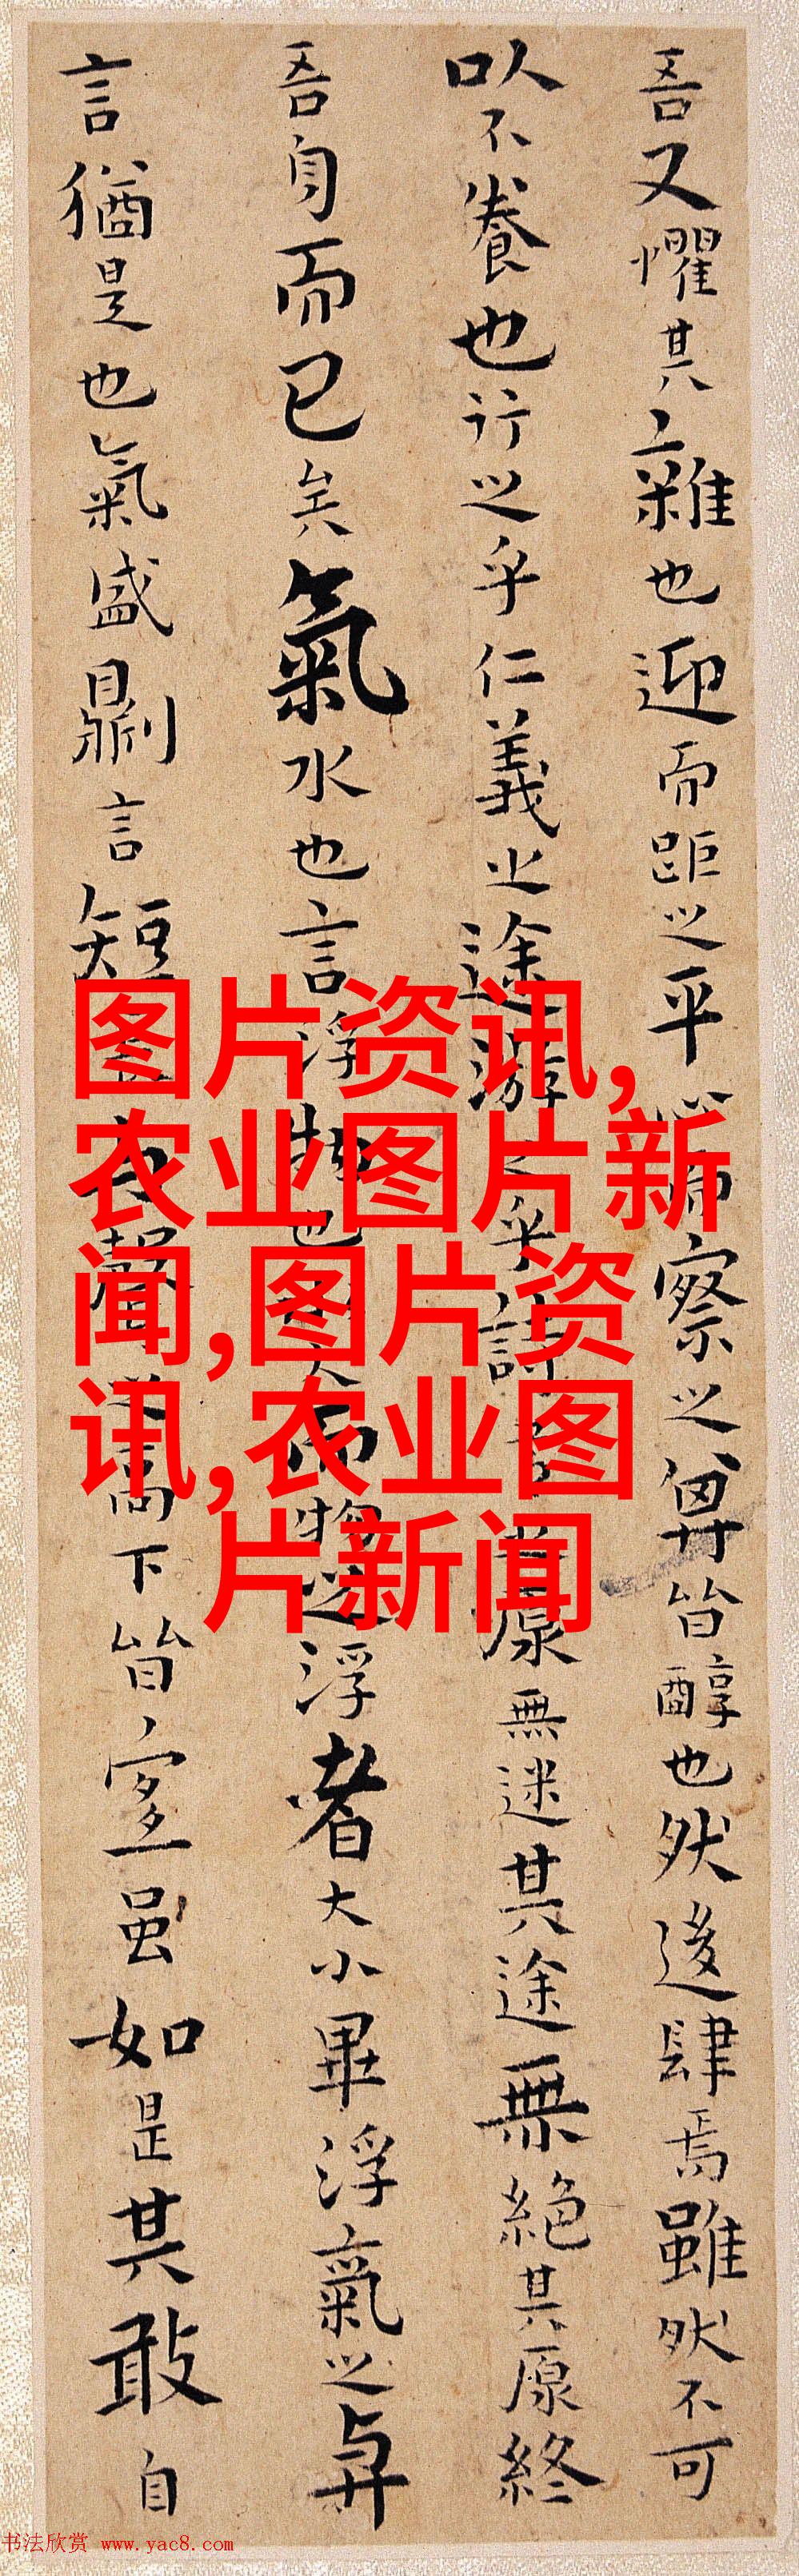 吾又懼其雜也迎而距之平心而察之其皆醇也然後肆焉雖然不可
以不養也行之乎仁義之途游之乎詩書之源無迷其途無絕其源終
吾身而已矣氣水也言浮物也水大而物之浮者大小畢浮氣之與
言猶是也氣盛則言短聲高下皆宜虽如是其敢自
图片资讯,
农业图片新
闻,图片资
讯,农业图
片新闻
书法欣赏 www.yac8.com